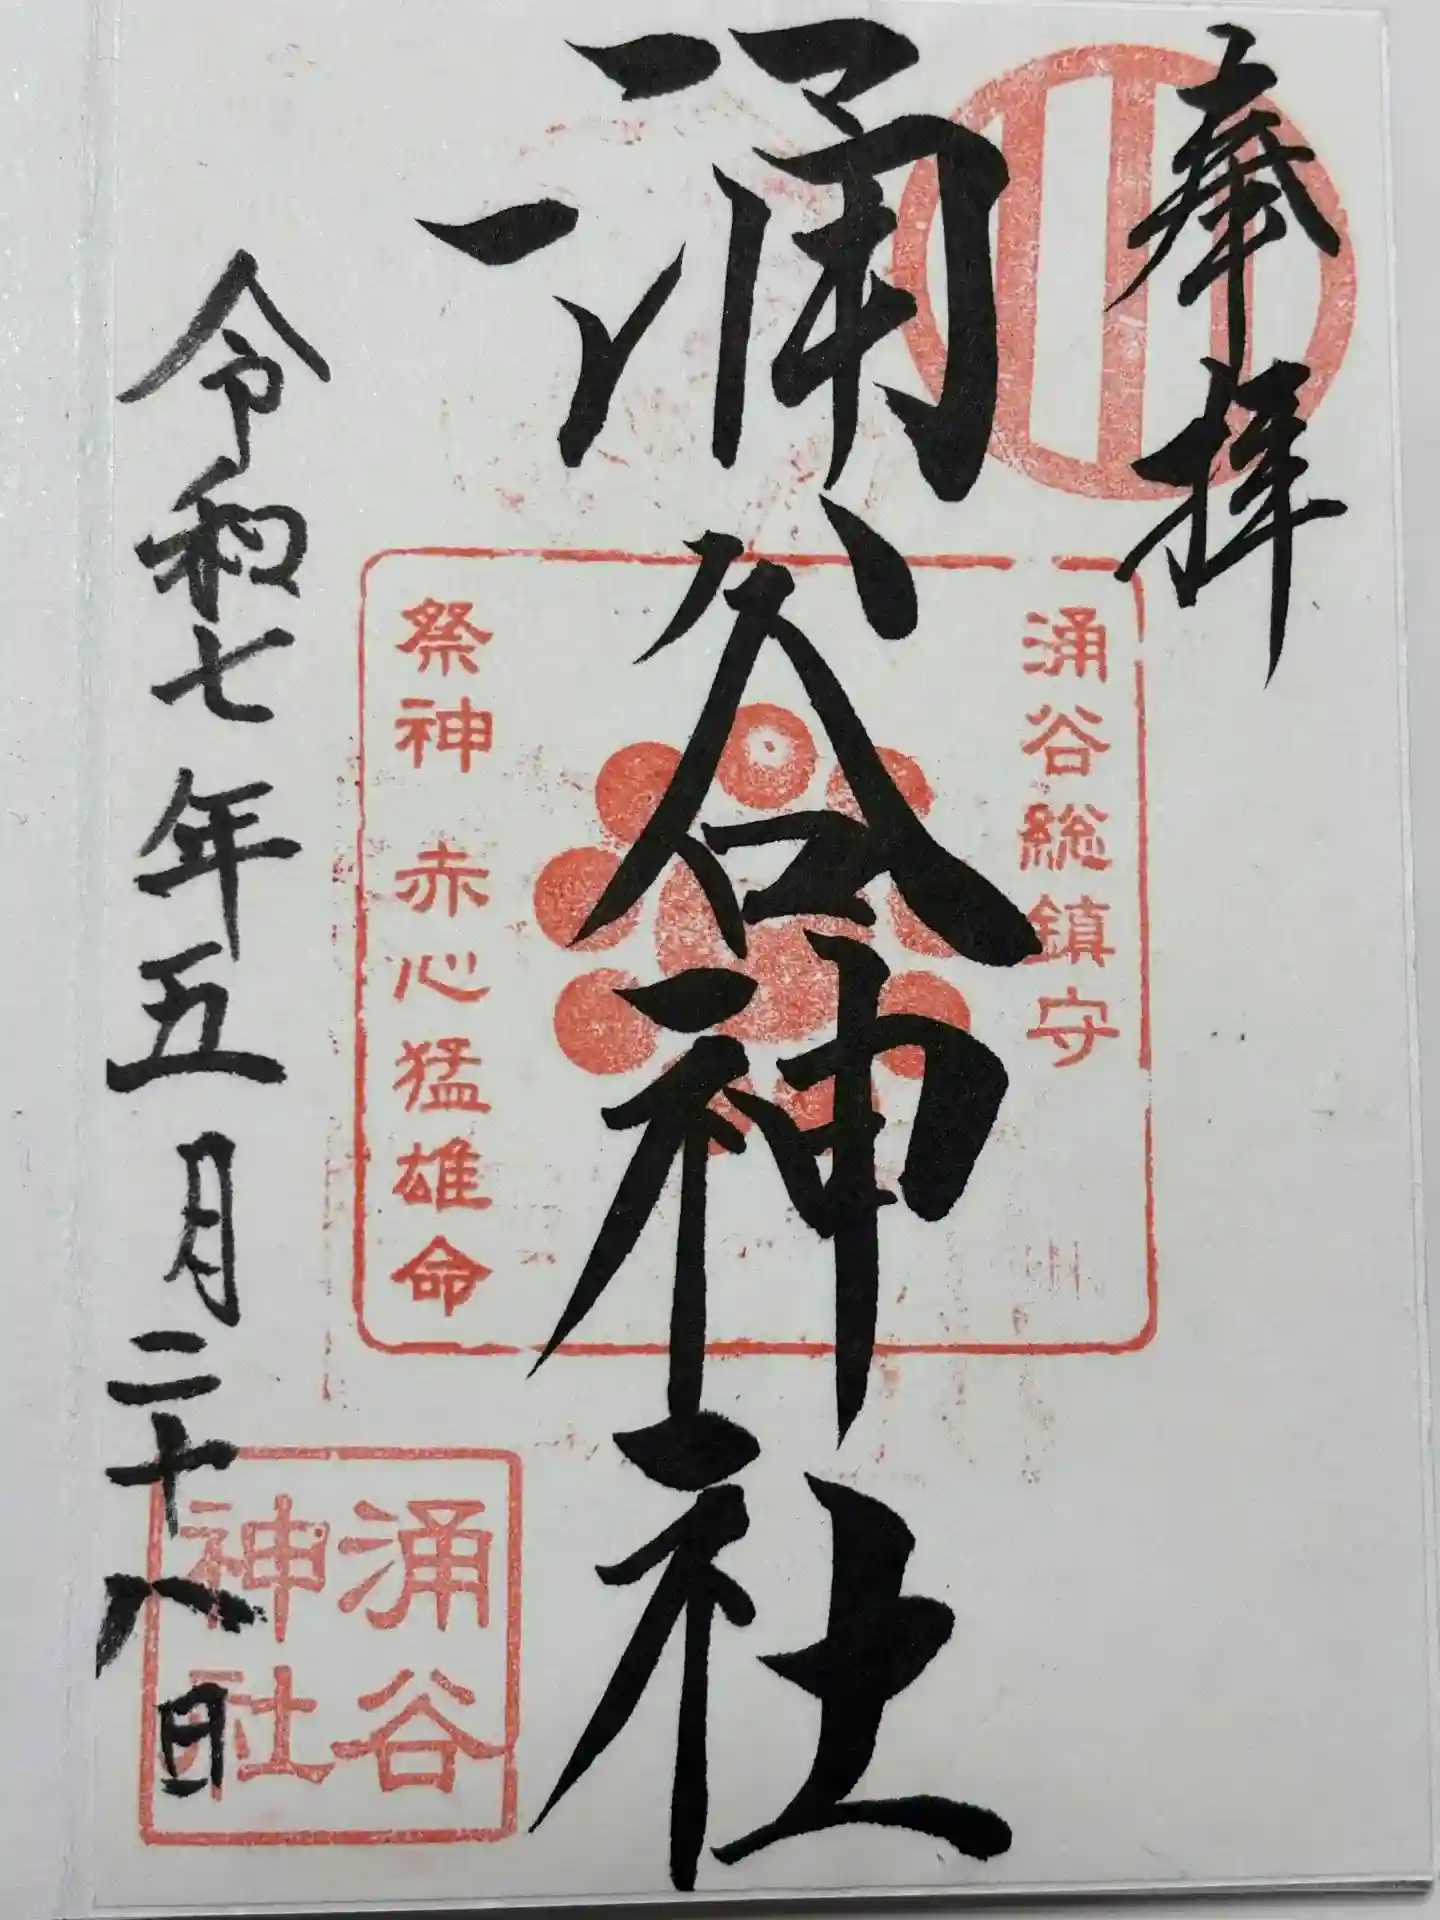 奉拝
涌谷総鎮守
涌谷神社
祭神 赤心猛雄命
涌谷
神社
令和七年五月二十八日